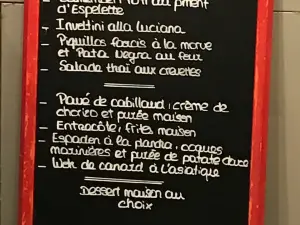 piment
d'Espelette
- Involtini alla luciana
- Piquillos farcis à la morue
et Pata Negra au feu
- Salade thaï aux crevettes
- Pavé de cabillaud, crème de
chorizo et purée maison
- Entrecôte, frites maison
- Espadon à la plancha, coques
marinières et purée de patate douce
- Wok de canard à l'asiatique
Dessert maison au
choix